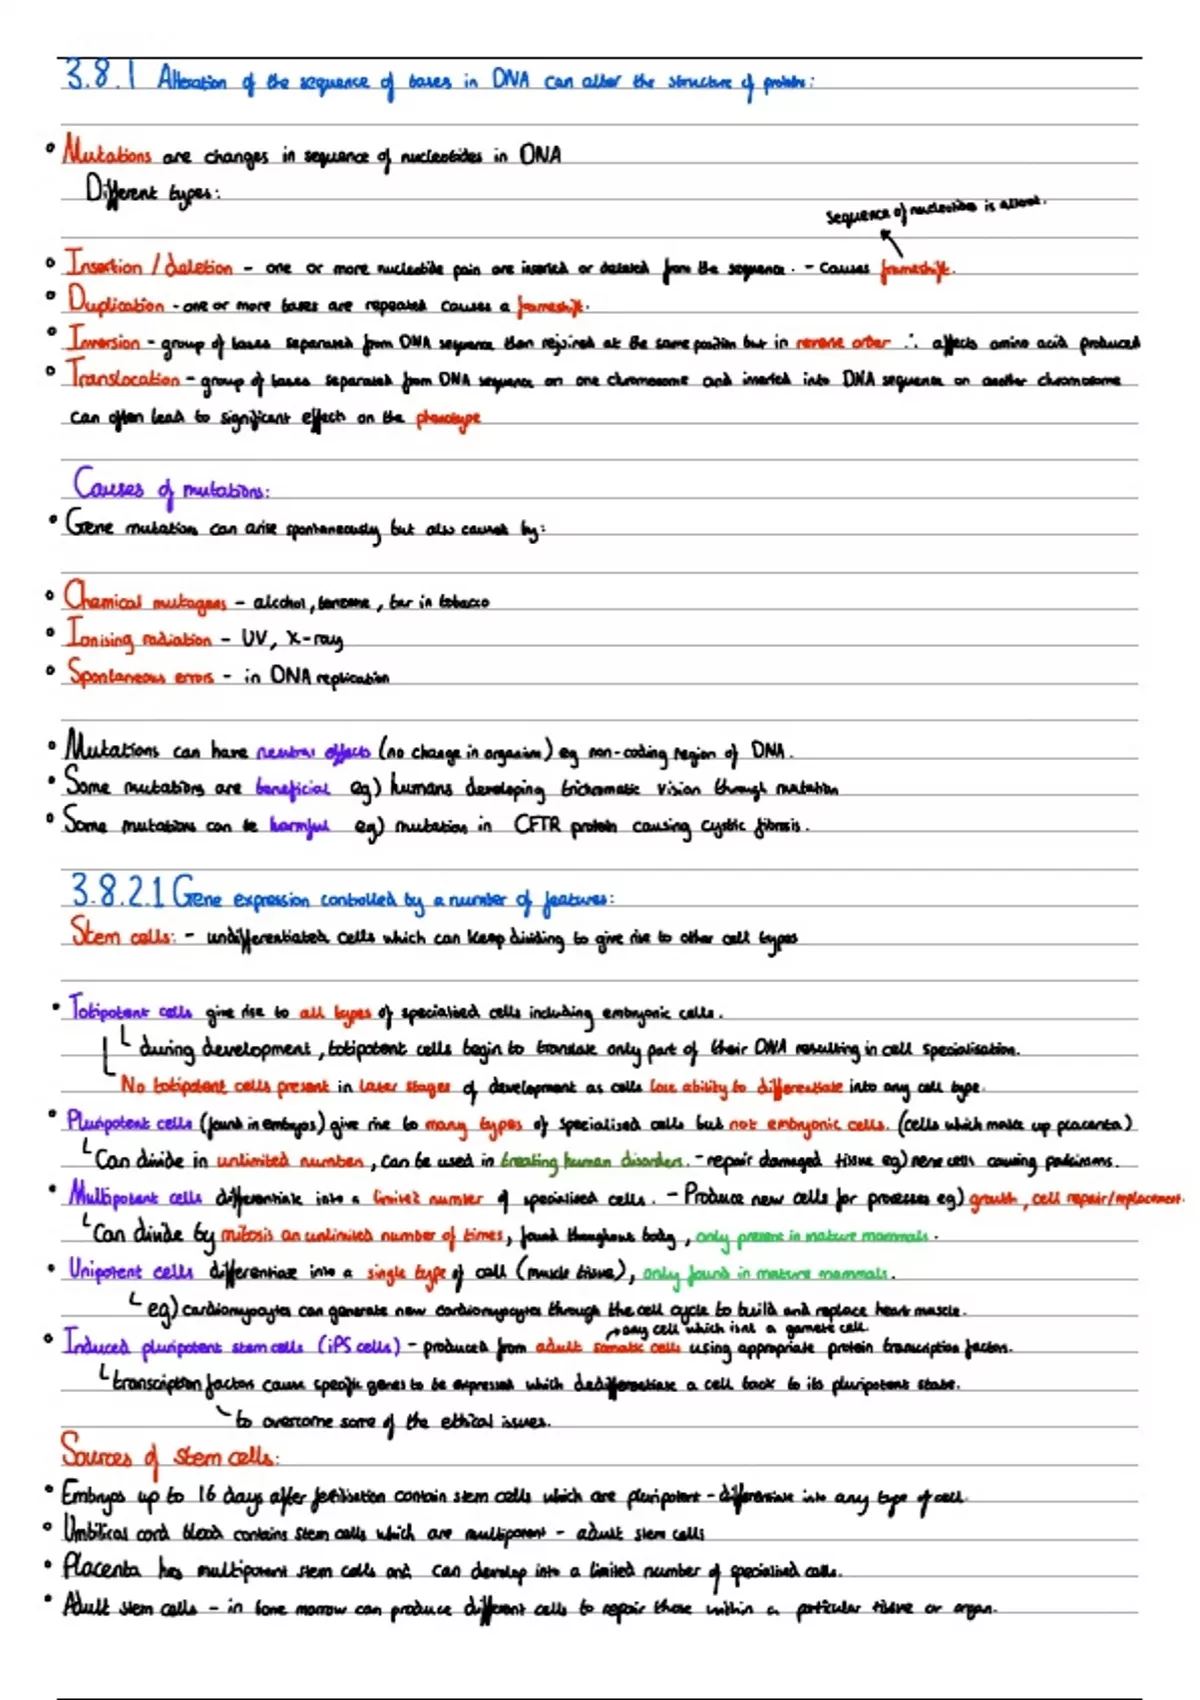 3.8.1 Alteration of the sequence of bases in DNA can alter the structure of proteins:
• Mutations are changes in sequence of nucleotides in DNA
Different types:
sequence of nucleotides is altered.
• Insertion / deletion - one or more nucleotide pairs are inserted or deleted from the sequence. - causes frameshift.
• Duplication - one or more bases are repeated causes a frameshift.
• Inversion - group of bases separated from DNA sequence then rejoined at the same position but in reverse order ∴ affects amino acid produced
• Translocation - group of bases separated from DNA sequence on one chromosome and inserted into DNA sequence on another chromosome
can often lead to significant effects on the phenotype
Causes of mutations:
• Gene mutations can arise spontaneously but also caused by:
• Chemical mutagens - alcohol, benzene, tar in tobacco
• Ionising radiation - UV, X-ray
• Spontaneous errors - in DNA replication
• Mutations can have neutral effects (no change in organism) eg non-coding region of DNA.
• Some mutations are beneficial eg) humans developing trichromatic vision through mutation
• Some mutations can be harmful eg) mutation in CFTR protein causing cystic fibrosis.
3.8.2.1 Gene expression controlled by a number of features:
Stem cells: - undifferentiated cells which can keep dividing to give rise to other cell types
• Totipotent cells give rise to all types of specialised cells including embryonic cells.
during development, totipotent cells begin to translate only part of their DNA resulting in cell specialisation.
No totipotent cells present in later stages of development as cells lose ability to differentiate into any cell type.
• Pluripotent cells (found in embryos) give rise to many types of specialised cells but not embryonic cells. (cells which make up placenta)
Can divide in unlimited numbers, can be used in treating human disorders. - repair damaged tissue eg) nerve cells causing parkinsons.
• Multipotent cells differentiate into a limited number of specialised cells. - Produce new cells for processes eg) growth, cell repair/replacement.
Can divide by mitosis an unlimited number of times, found throughout body, only present in mature mammals.
• Unipotent cells differentiate into a single type of cell (muscle tissue), only found in mature mammals.
eg) cardiomyocytes can generate new cardiomyocytes through the cell cycle to build and replace heart muscle.
→ any cell which isnt a gamete cell.
• Induced pluripotent stem cells (iPS cells) - produced from adult somatic cells using appropriate protein transcription factors.
transcription factors cause specific genes to be expressed which dedifferentiate a cell back to its pluripotent state.
to overcome some of the ethical issues.
Sources of stem cells:
• Embryos up to 16 days after fertilisation contain stem cells which are pluripotent - differentiate into any type of cell.
• Umbilical cord blood contains stem cells which are multipotent - adult stem cells
• Placenta has multipotent stem cells and can develop into a limited number of specialised cells.
• Adult stem cells - in bone marrow can produce different cells to repair those within a particular tissue or organ.